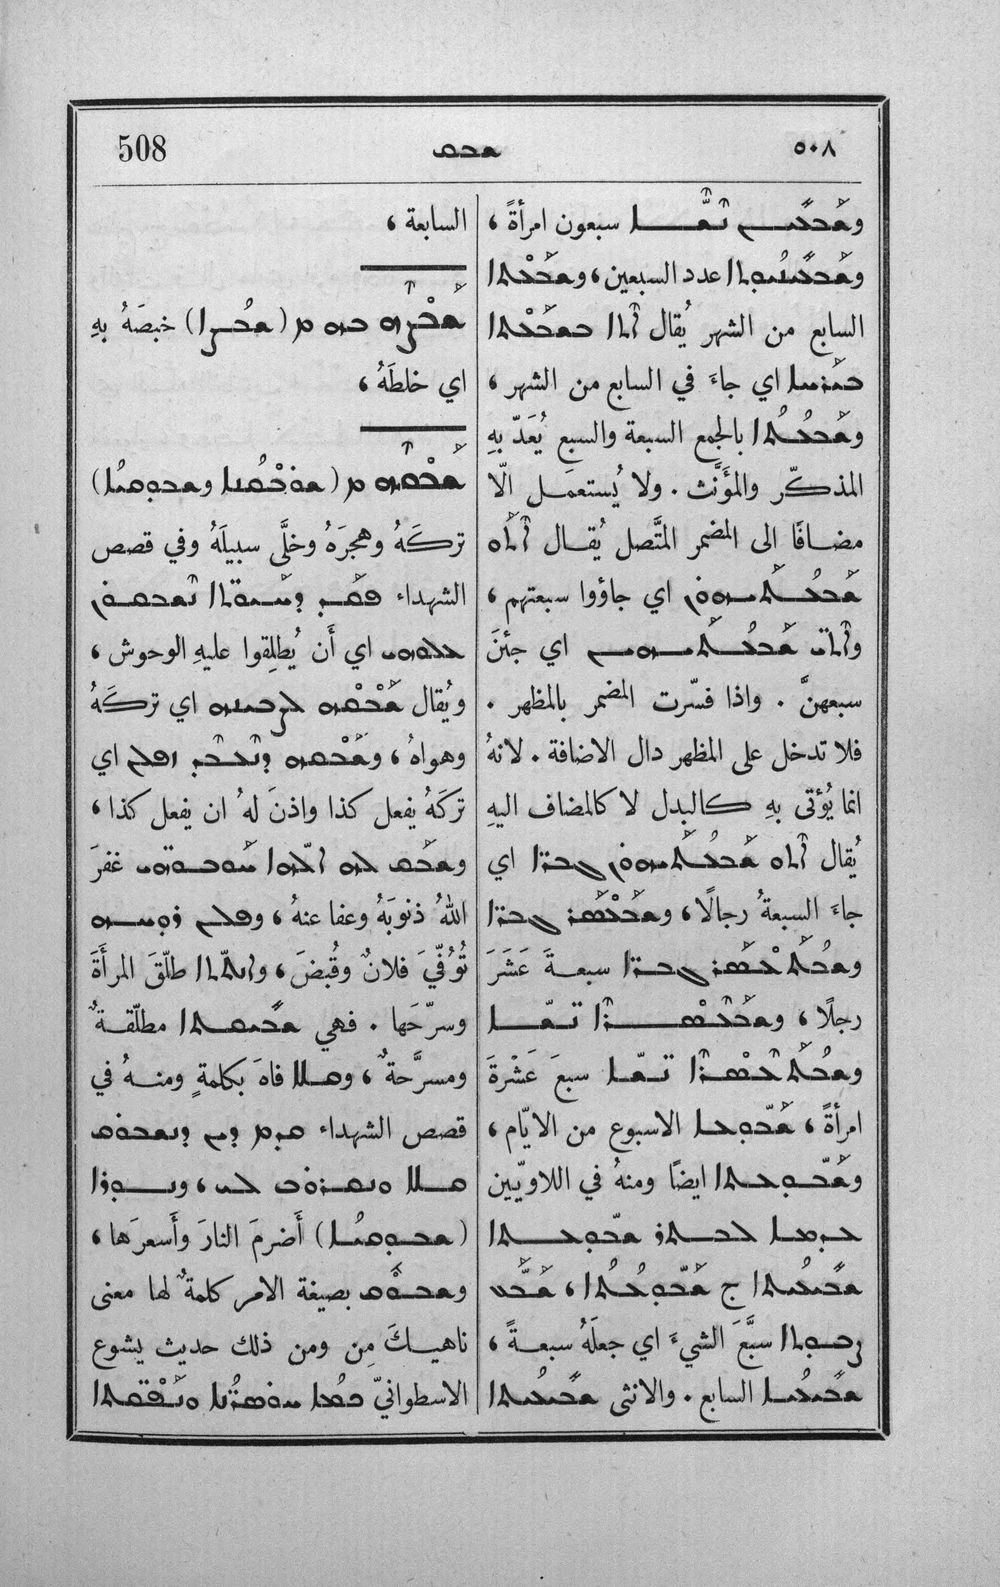 ٥٠٨ ܫܒܩ 508
ܘܫܰܒܥܺܝܢ ܢܶܫ̈ܶܐ سبعون امرأةً ،
ܘܫܰܒܥܺܝܢܳܝܘܬܐ عدد السبعين ، ܘܫܰܒܥܬܐ
السابع من الشهر يُقال ܐܶܬܐ ܒܫܰܒܥܬܐ
ܒܝܰܪܚܐ اي جاءَ في السابع من الشهر ،
ܘܫܰܒܥܳܬܐ بالجمع السبعة والسبع يُعَدّ بهِ
المذكّر والمؤنَّث . ولا يُستعمَل الّا
مضافًا الى المضمر المتَّصل يُقال ܐܶܬܰܘ
ܫܰܒܥܳܬܰܝܗܘܢ اي جاؤوا سبعتهم ،
ܘܐܶܬܝ̈ ܫܰܒܥܳܬܰܝܗܝܢ اي جئنَ
سبعهنَّ . واذا فسّرت المضمر بالمظهر .
فلا تدخل على المظهر دال الاضافة . لانهُ
انما يُؤتى بهِ كالبدل لا كالمضاف اليهِ
يُقال ܐܬܘ ܫܰܒܥܳܬܰܝܗܘܢ ܓܒܪ̈ܐ اي
جاءَ السبعةُ رجالًا ، ܘܫܒܬܥܣܪ ܓܒܪ̈ܐ
ܘܫܒܬܥܣܪ ܓܒܪ̈ܐ سبعةَ عَشَرَ
رجلًا ، ܘܫܒܥܣܪ̈ܐ ܢܫ̈ܐ
ܘܫܒܬܥܣܪ̈ܐ ܢܫ̈ܐ سبعَ عَشْرَةَ
امرأةً ، ܫܰܒܘܥܐ الاسبوع من الايّام ،
ܘܫܰܒܘܥܬܐ ايضًا ومنهُ في اللاويّين
ܥܕܡܐ ܠܒܬܪ ܫܒܘܥܬܐ
ܫܒܝܥܳܝܬܐ ج ܫܰܒܘܥܳܬܐ ، ܫܰܒܥ
ܨܒܘܬܐ سبَّعَ الشيءَ اي جعلَهُ سبعةً ،
ܫܒܝܥܳܝܐ السابع . والانثى ܫܒܝܥܳܝܬܐ
السابعة ،
ܫܰܒܨܶܗ ܒܗ ܡ (ܫܒܳܨܐ) خبصَهُ بهِ
اي خلطَهُ ،
ܫܰܒܩܶܗ ܡ (ܫܘܒܩܳܢܐ ܘܫܒܘܩܝܐ)
تركَهُ وهجرَهُ وخلَّى سبيلَهُ وفي قصص
الشهداء ܦܩܕ ܕܚܝܘ̈ܬܐ ܢܫܒܩܘܢ
ܥܠܘܗܝ اي أَن يُطلِقوا عليهِ الوحوش ،
ويُقال ܫܰܒܩܗ ܠܨܒܝܢܗ اي تركَهُ
وهواهُ ، ܘܫܰܒܩܗ ܕܢܥܒܕ ܗܟܢ اي
تركَهُ يفعل كذا واذنَ لهُ ان يفعل كذا ،
ܘܫܒܩ ܠܗ ܐܠܗܐ ܚܘܒܘ̈ܗܝ غفرَ
اللهُ ذنوبَهُ وعفا عنهُ ، ܘܦܠܢ ܪܘܚܗ
تُوُفّيَ فلانٌ وقُبضَ ، ܘܐܢܬܬܐ طلّقَ المرأَةَ
وسرّحَها . فهي ܫܒܝܩܬܐ مطلّقةٌ
ومسرَّحةٌ ، ܘܡܠܬܐ فاهَ بكلمةٍ ومنهُ في
قصص الشهداء ܩܕܡ ܕܝܢ ܕܢܫܒܘܩ
ܡܠܬܐ ܘܢܫܪܘܒ ܠܝ ، ܘܢܘܪܐ
(ܫܒܘܩܝܐ) أَضرمَ النارَ وأَسعرَها ،
ܘܫܒܘܩ بصيغة الامر كلمةٌ لها معنى
ناهيكَ مِن ومن ذلك حديث يشوع
الاسطوانيّ